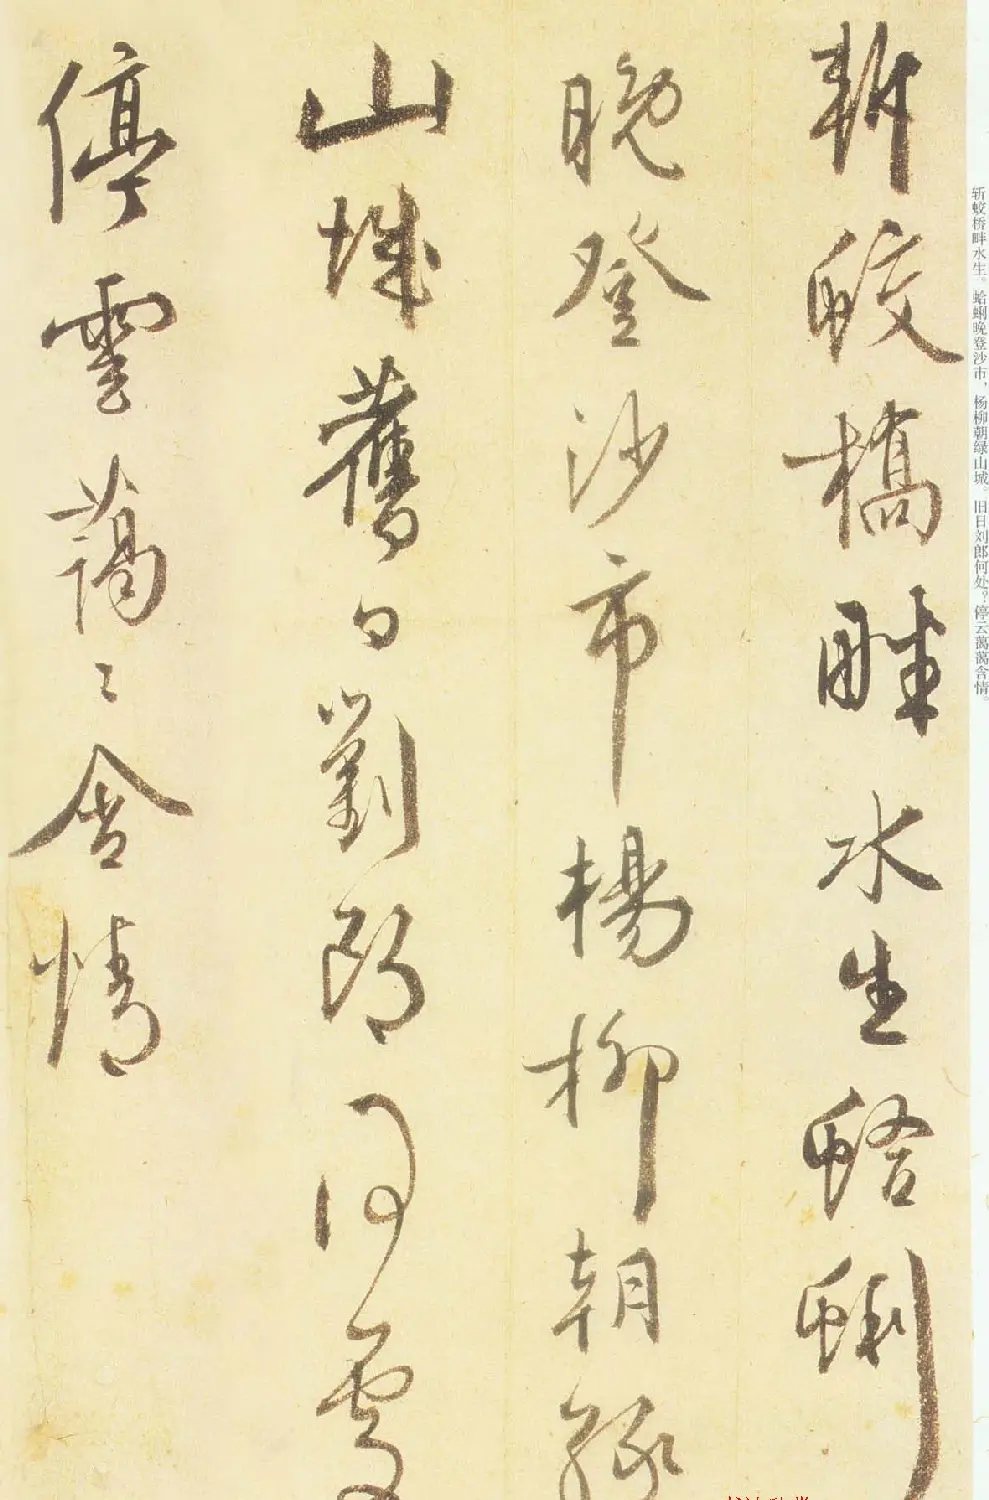 斩蛟桥畔水生。蛤蜊晚登沙市，杨柳朝绿山城。旧日刘郎何处？停云蔼蔼含情。
斬蛟橋畔水生蛤蜊
晚登沙市楊柳朝綠
山城舊日劉郎何處
停雲藹〻含情